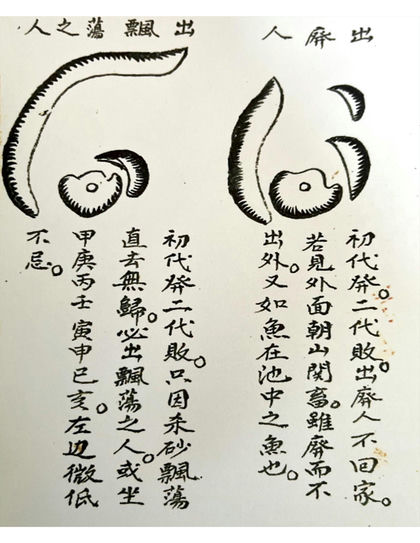 出廢人
初代發。二代敗。出廢人不回家。
若見外面朝山関蓄。雖廢而不
出外。又如魚在池中之魚也。
出飄蕩之人
初代發二代敗。只因杀砂飄蕩
直去無歸。必出飄蕩之人。或坐
甲庚丙壬寅申巳亥。左边微低
不忌。